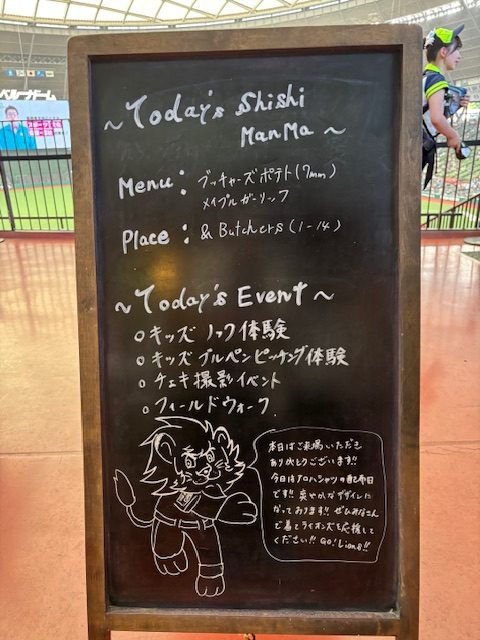 ベルーナドーム
~ Today's Shishi
ManMa ~
Menu: ブッチャーズポテト(7mm)
メイプルガーリック
Place: & Butchers (1-14)
~ Today's Event ~
○ キッズ ノック体験
○ キッズ ブルペンピッチング体験
○ チェキ撮影イベント
○ フィールドウォーク
本日はご来場いただき
ありがとうございます!!
今日はアロハシャツの配布日
です!! 爽やかなデザインに
なっております!! ぜひみなさん
で着てライオンズを応援して
ください!! Go! Lions!!